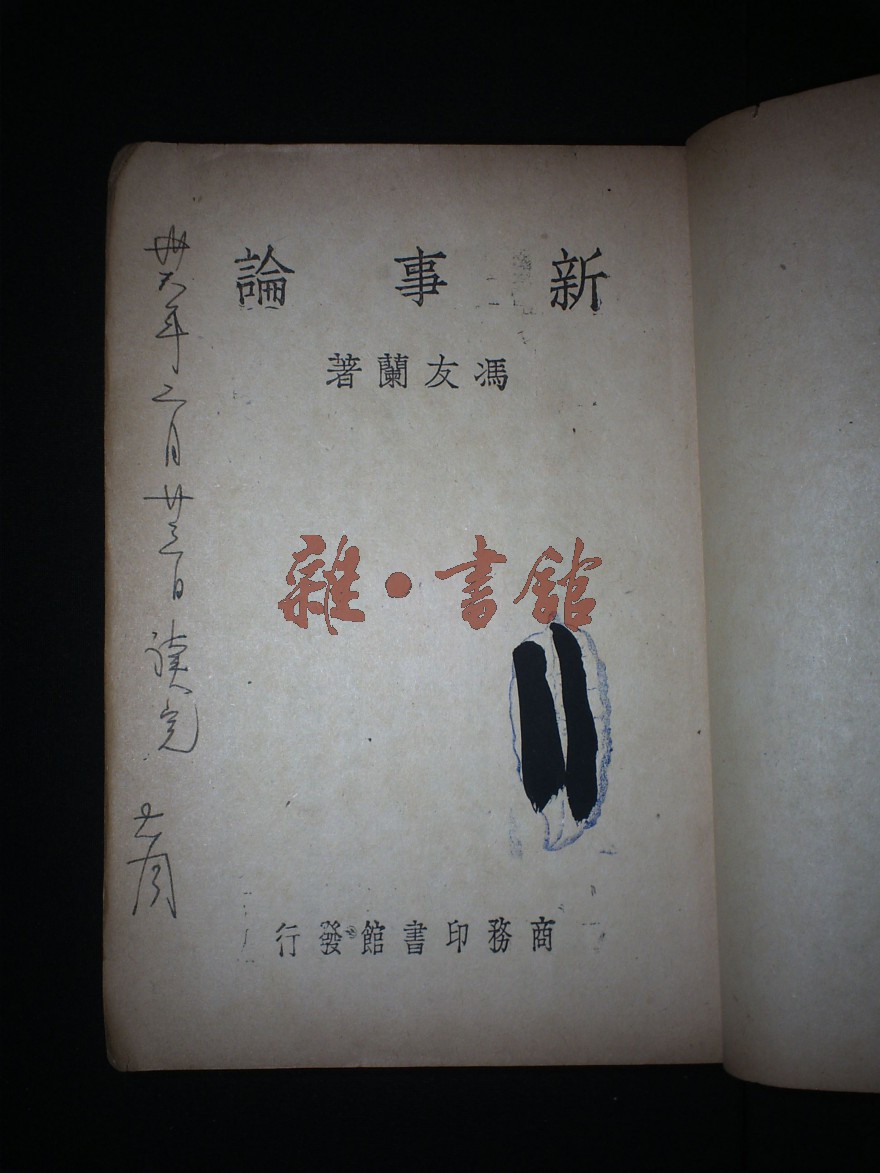 新事論
馮友蘭著
雜·書館
商務印書館發行
卅六年二月廿三日读完